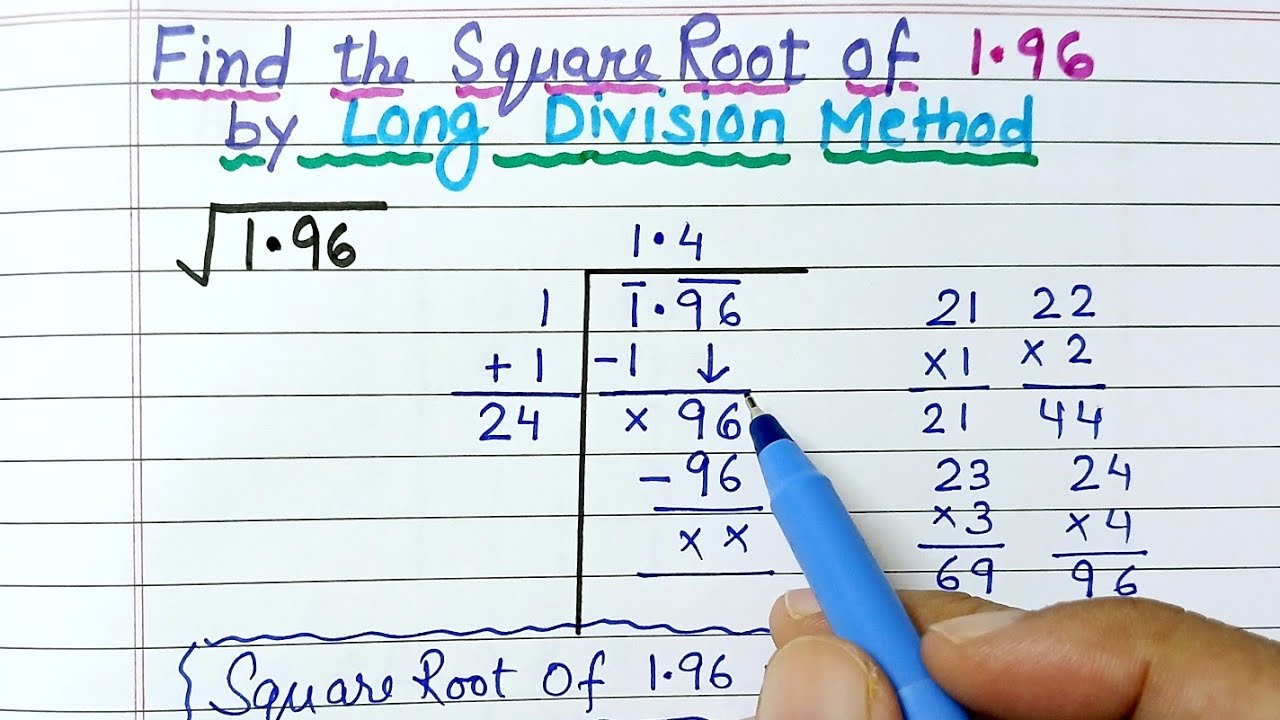 Find the Square Root of 1.96
by Long Division Method
√1.96
1.4
1 1.96 21 22
+ 1 -1 ↓ × 1 × 2
24 × 96 21 44
- 96 23 24
× × × 3 × 4
69 96
Square Root Of 1.96